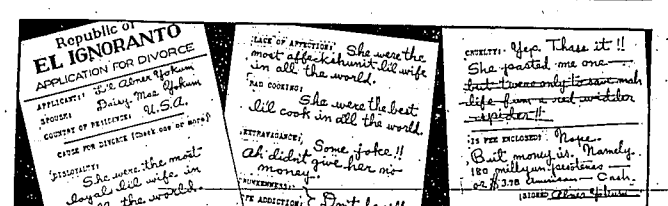 Republic of
EL IGNORANTO
APPLICATION FOR DIVORCE
APPLICANT: Li'l Abner Yokum
SPOUSE: Daisy Mae Yokum
COUNTRY OF RESIDENCE: U.S.A.
CAUSE FOR DIVORCE (Check one or more)
DISLOYALTY:
She were the most
loyal lil wife in
the world.
LACK OF AFFECTION: She were the
most affeckshunit lil wife
in all the world.
BAD COOKING:
She were the best
lil cook in all the world.
EXTRAVAGANCE: Some joke!!
Ah didn't give her no
money.
DRUNKENNESS:
ADDICTION:
CRUELTY: Yep. Thass it!!
She pasted me one—
but twere only to save mah
life fum a red
spider!!
IS FEE ENCLOSED: Nope.
But money is. Namely.
180 millyun
or $3.78 — Cash.
(SIGNED) Abner Yokum